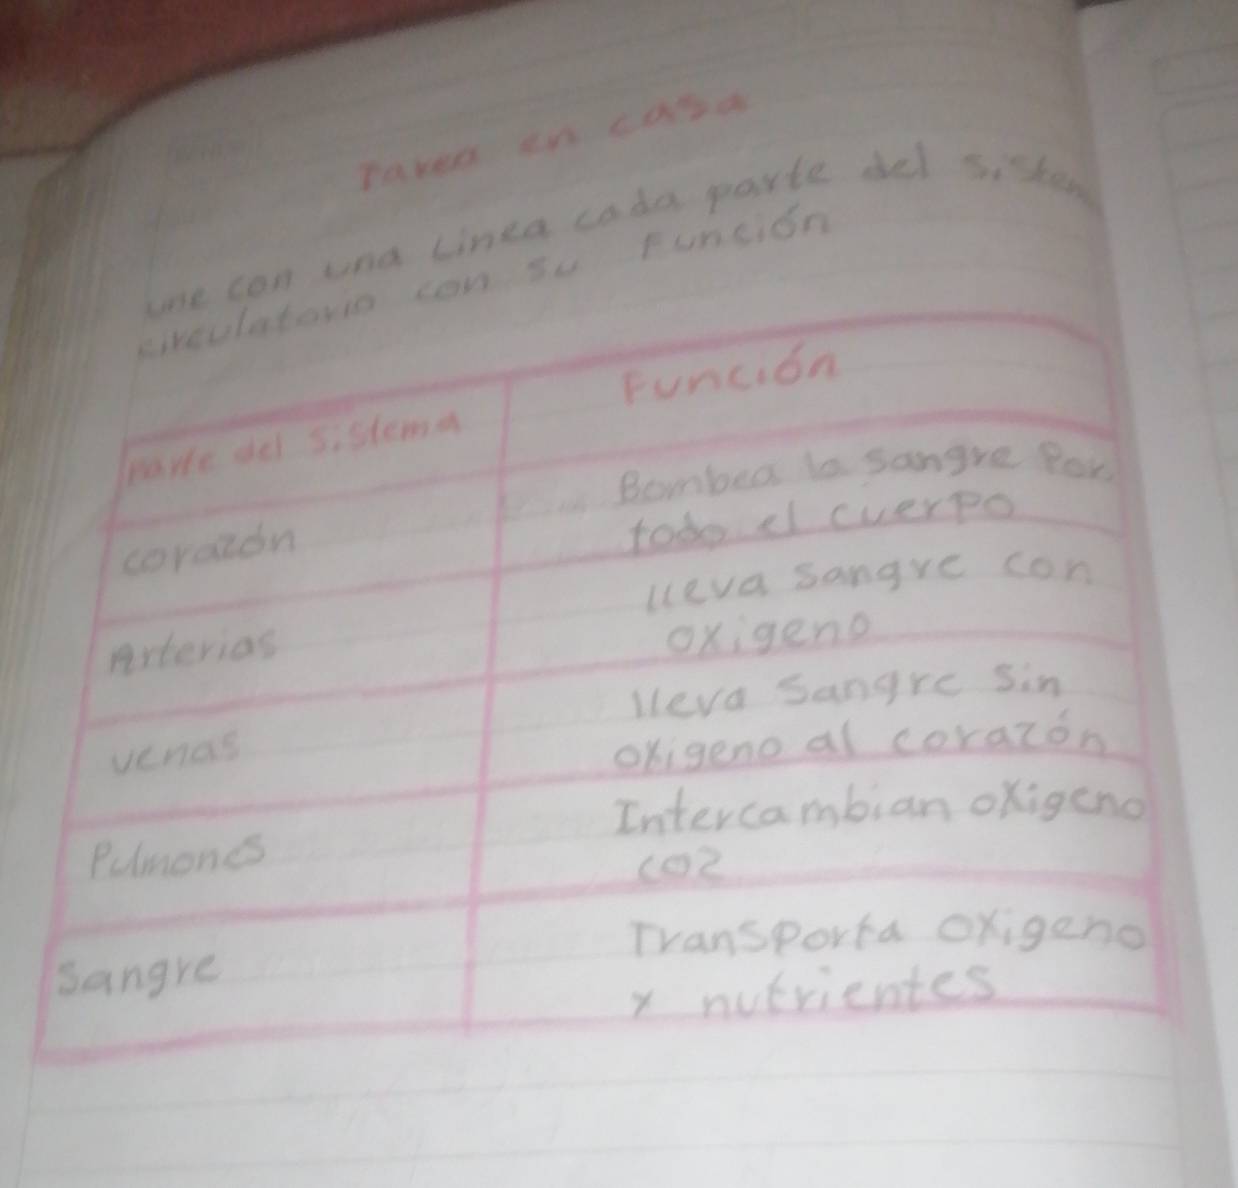 Tarea en casa
une con una Linea cada parte del sistem
circulatorio con su Función
parte del sistema
Función
corazón
Bombea la sangre Por
todo el cuerpo
Arterias
lleva sangre con
oxigeno
venas
lleva sangre sin
oxigeno al corazón
Pulmones
Intercambian oxigeno
CO2
Sangre
Transporta oxigeno
y nutrientes